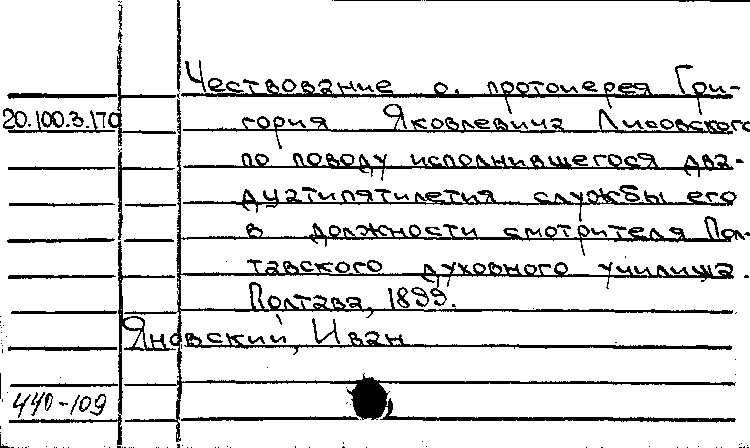 Чествование о. протоиерея Гри-
20.100.3.170 гория Яковлевича Лисовского
по поводу исполнившегося два-
дцатипятилетия службы его
в должности смотрителя Пол-
тавского духовного училища.
Полтава, 1899.
Яновский, Иван
440-109